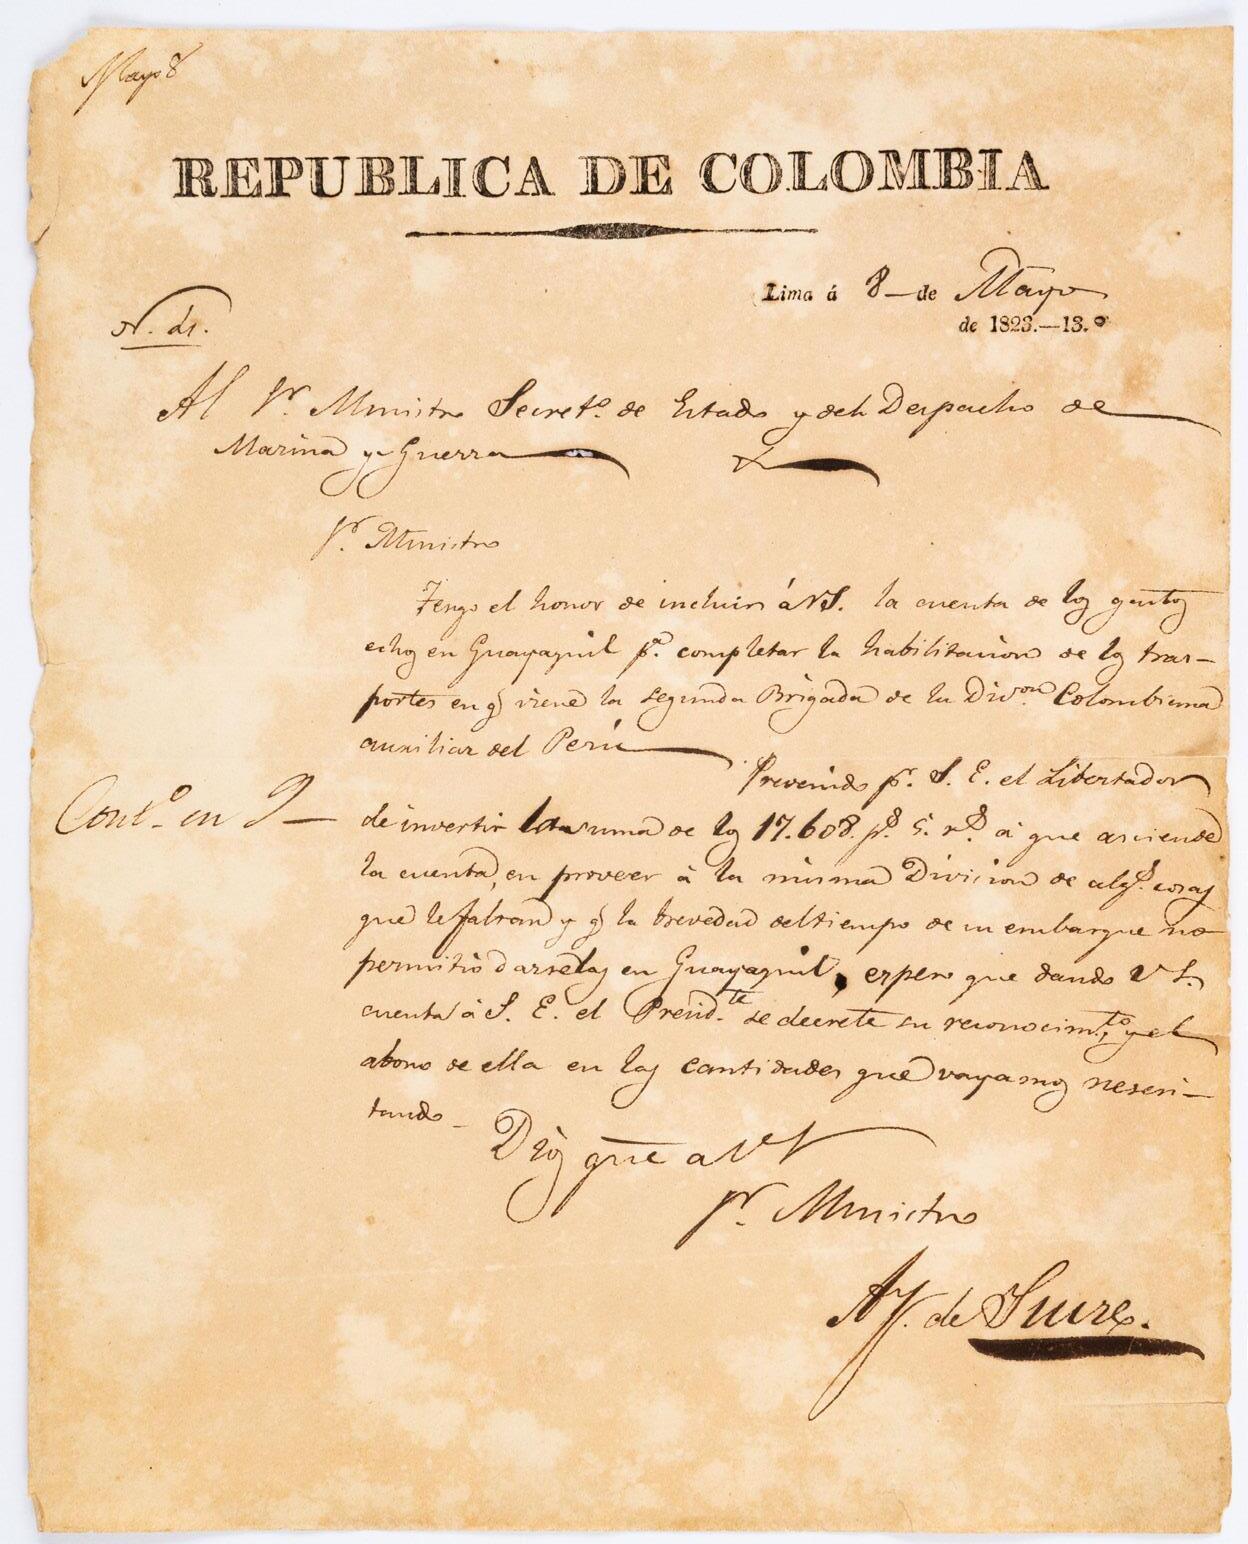 Mayo 8
REPUBLICA DE COLOMBIA
Lima á 8 de Mayo
de 1823.—13.º
N.
Al Sr. Ministro Secret.o de Estado y del Despacho de
Marina y Guerra
Sr. Ministro
Tengo el honor de incluir á VS. la cuenta de los gastos
echos en Guayaquil p.a completar la habilitacion de los tras-
portes en q.e viene la segunda Brigada de la Div.on Colombiana
auxiliar del Perú
Prevenido p.r S. E. el Libertador
Cont.o en 9
de invertir la suma de los 17.608. p.s 5. r.s á que asciende
la cuenta, en proveer á la misma Division de alg.s cosas
que le faltan y q.e la brevedad del tiempo de su embarque no
permitió darselas en Guayaquil, espero que dando VS.
cuenta á S. E. el Presid.te se decrete su reconocim.to y el
abono de ella en las cantidades que vayamos nesesi-
tando
Dios gue a VS
Sr. Ministro
A. J. de Sucre.